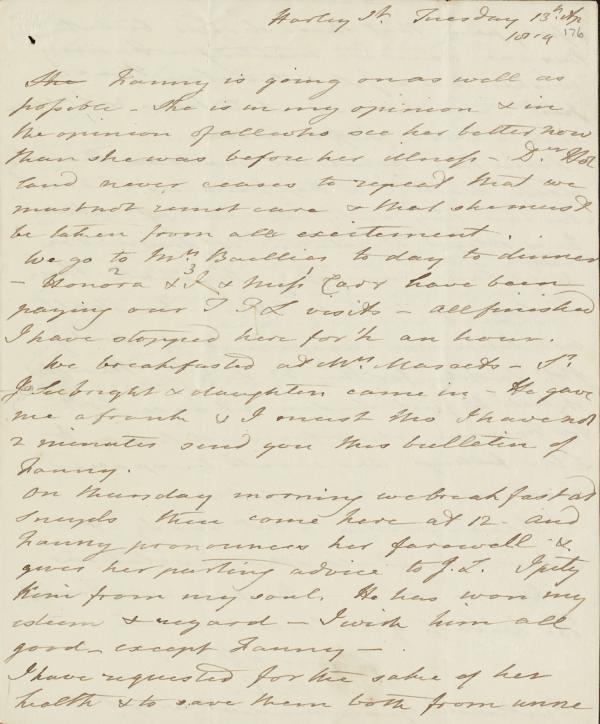 Harley St. Tuesday 13th Ap
1819 176
She Fanny is going on as well as
possible - She is in my opinion & in
the opinion of all who see her better now
than she was before her illness - Dr. Hol
land never ceases to repeat that we
must not remit care & that she must
be taken from all excitement.
We go to Mrs Baillies to day to dinner
- Honora 2 & 3 I & Miss 1 Carr have been
paying our T P L visits - all finished
I have stopped here for ½ an hour.
We breakfasted at Mrs Marcets - Sr
J Sebright & daughters came in - He gave
me a frank & I must tho I have not
2 minutes send you this bulletin of
Fanny.
On thursday morning we breakfast at
Sneyds then come here at 12 - and
Fanny pronounces her farewell &
gives her parting advice to J.L. I pity
him from my soul. He has won my
esteem & regard - I wish him all
good - except Fanny -
I have requested for the sake of her
health & to save them both from unne